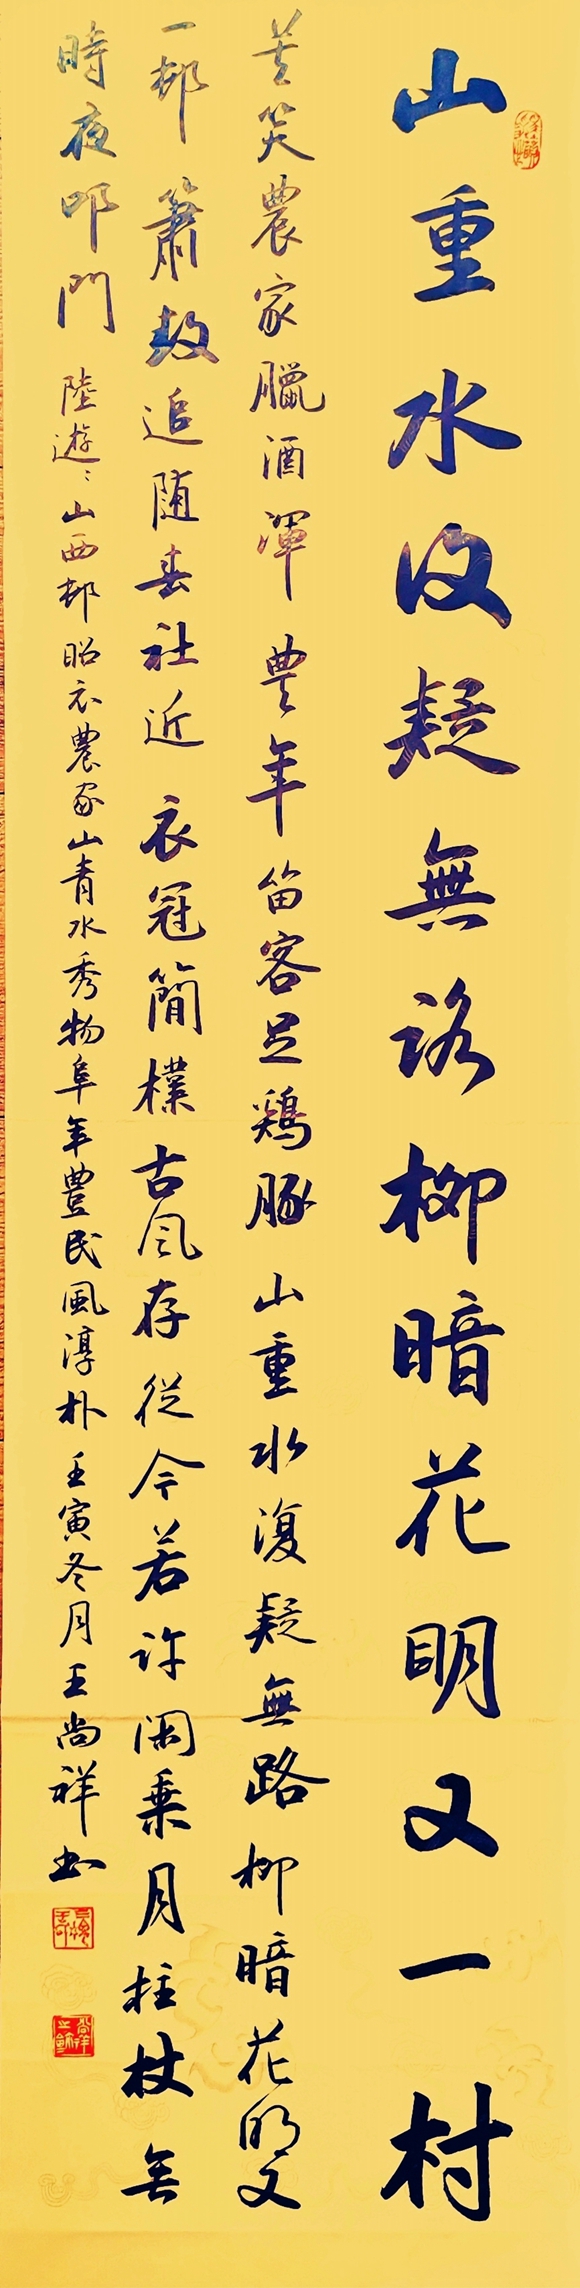 山重水复疑無路柳暗花明又一村
莫笑農家臘酒渾豊年留客足鶏豚山重水復疑無路柳暗花明又
一邨簫鼓追随春社近衣冠簡樸古風存從今若許閑乗月拄杖無
時夜叩門陸遊〻山西邨昭示農家山青水秀物阜年豐民風淳朴壬寅冬月王尚祥书